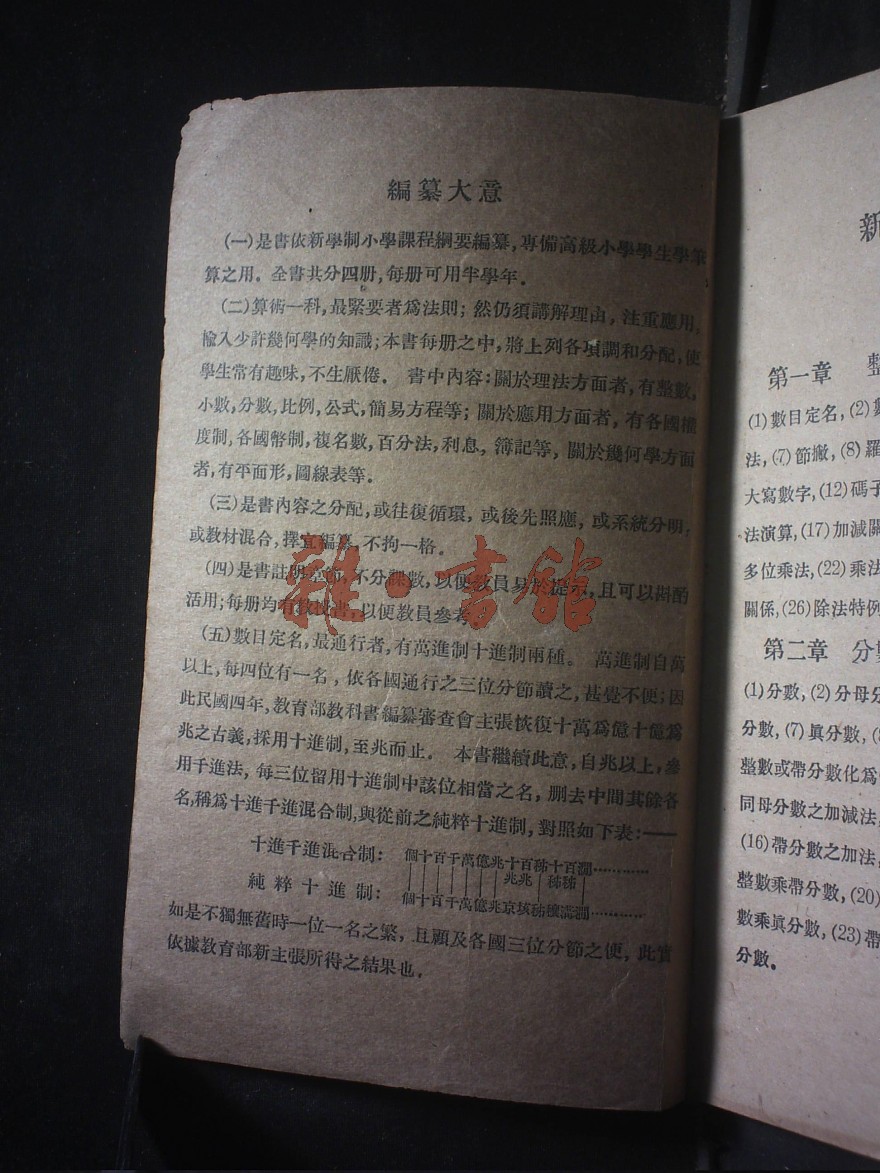 編纂大意
(一)是書依新學制小學課程綱要編纂,專備高級小學學生學筆
算之用。全書共分四册,每册可用半學年。
(二)算術一科,最緊要者爲法則;然仍須講解理由,注重應用,
輸入少許幾何學的知識;本書每册之中,將上列各項調和分配,使
學生常有趣味,不生厭倦。書中內容:關於理法方面者,有整數,
小數,分數,比例,公式,簡易方程等;關於應用方面者,有各國權
度制,各國幣制,複名數,百分法,利息,簿記等,關於幾何學方面
者,有平面形,圖線表等。
(三)是書內容之分配,或往復循環,或後先照應,或系統分明,
或教材混合,擇宜編纂,不拘一格。
(四)是書註明章節,不分課數,以便教員易於提示,且可以斟酌
活用;每册均有教授書,以便教員參考。
(五)數目定名,最通行者,有萬進制十進制兩種。萬進制自萬
以上,每四位有一名,依各國通行之三位分節讀之,甚覺不便;因
此民國四年,教育部教科書編纂審查會主張恢復十萬爲億十億爲
兆之古義,採用十進制,至兆而止。本書繼續此意,自兆以上,參
用千進法,每三位留用十進制中該位相當之名,删去中間其餘各
名,稱爲十進千進混合制,與從前之純粹十進制,對照如下表:——
十進千進混合制:個十百千萬億兆十百秭十百澗…………
兆兆 秭秭
純粹十進制:個十百千萬億兆京垓秭穰溝澗…………
如是不獨無舊時一位一名之繁,且顧及各國三位分節之便,此實
依據教育部新主張所得之結果也。
雜·書館
新
第一章 整
(1)數目定名,(2)數
法,(7)節撇,(8)羅
大寫數字,(12)碼子
法演算,(17)加減關
多位乘法,(22)乘法
關係,(26)除法特例
第二章 分數
(1)分數,(2)分母分
分數,(7)眞分數,(8
整數或帶分數化爲
同母分數之加減法,
(16)帶分數之加法,
整數乘帶分數,(20)
數乘眞分數,(23)帶
分數。